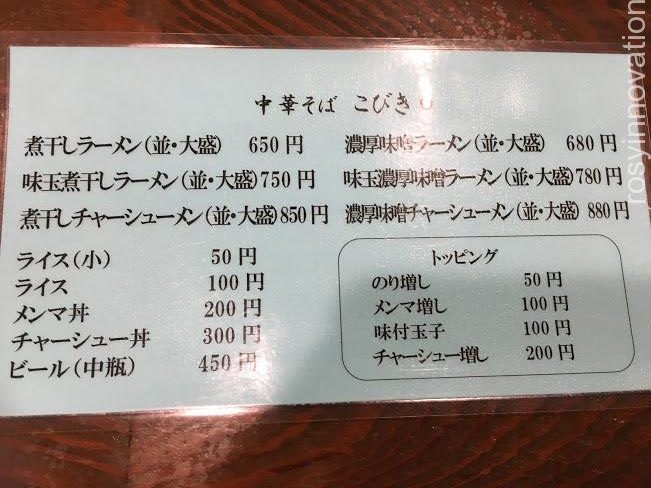 中華そば こびき
煮干しラーメン(並・大盛) 650円
味玉煮干しラーメン(並・大盛)750円
煮干しチャーシューメン(並・大盛)850円
濃厚味噌ラーメン(並・大盛) 680円
味玉濃厚味噌ラーメン(並・大盛)780円
濃厚味噌チャーシューメン(並・大盛) 880円
ライス(小) 50円
ライス 100円
メンマ丼 200円
チャーシュー丼 300円
ビール(中瓶) 450円
トッピング
のり増し 50円
メンマ増し 100円
味付玉子 100円
チャーシュー増し 200円
rosyinnovation